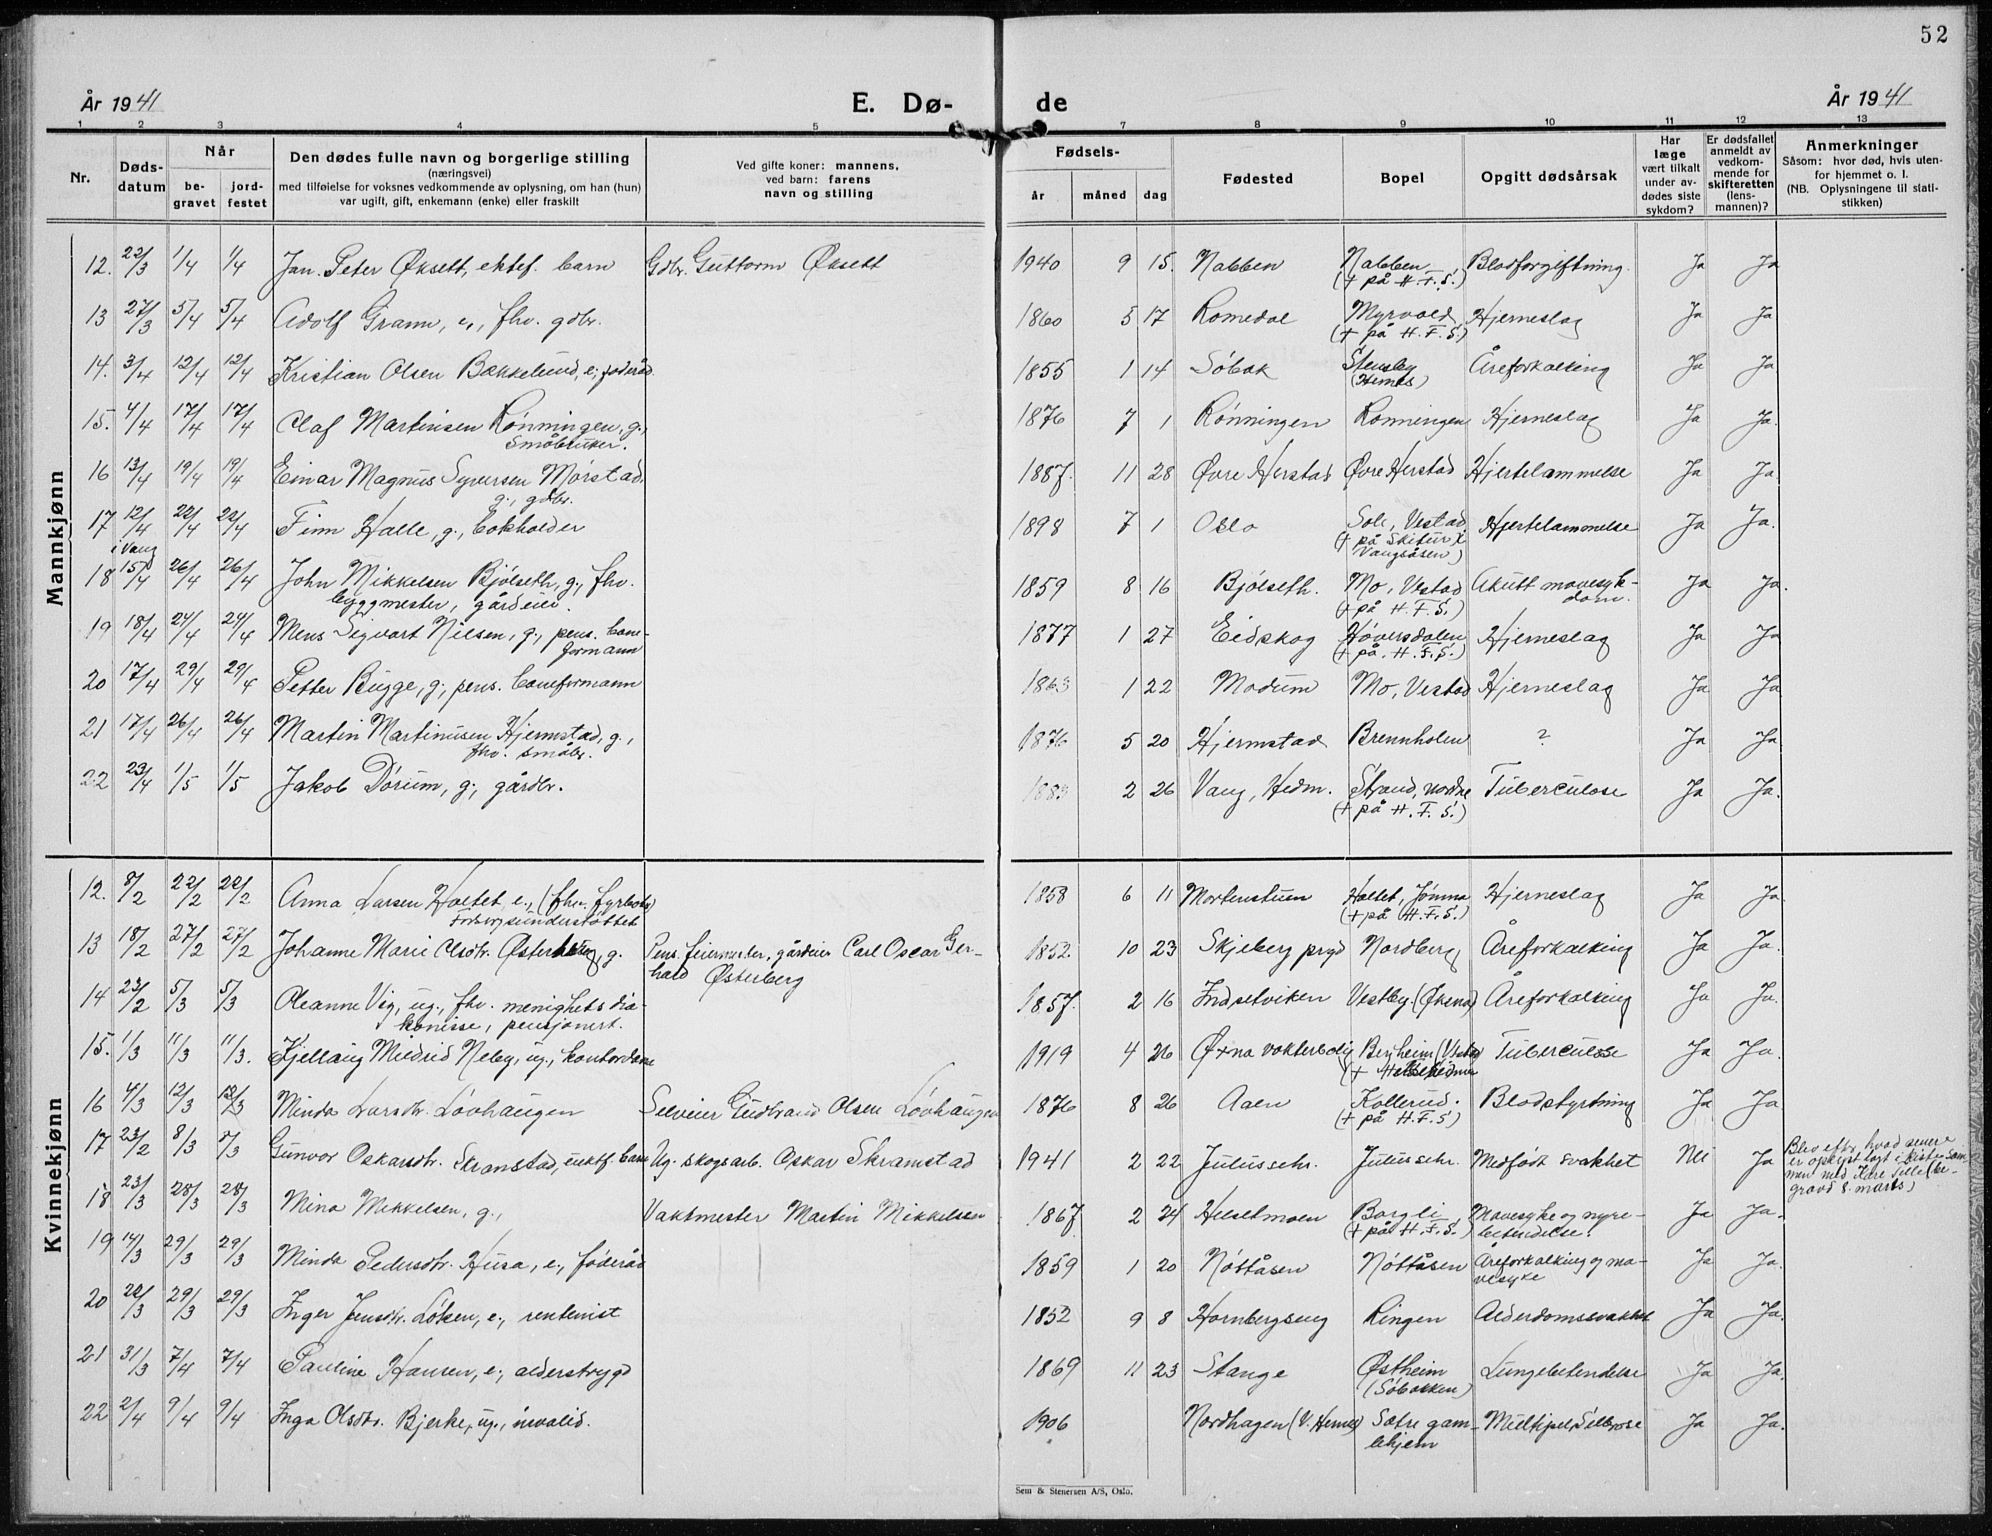 52
År 1941 E. Dø- de År 1941
1 2 3 4 5 7 8 9 10 11 12 13
Nr. Døds-datum Når be-gravet jord-festet
Den dødes fulle navn og borgerlige stilling
(næringsvei)
med tilføielse for voksnes vedkommende av oplysning, om han (hun)
var ugift, gift, enkemann (enke) eller fraskilt
Ved gifte koner: mannens,
ved barn: farens
navn og stilling
Fødsels- år måned dag
Fødested Bopel Opgitt dødsårsak
Har læge vært tilkalt under av-dødes siste sykdom?
Er dødsfallet anmeldt av vedkom-mende for skifteretten (lens-mannen)?
Anmerkninger
Såsom: hvor død, hvis uten-
for hjemmet o. l.
(NB. Oplysningene til stati-
stikken)
Mannkjønn
12. 22/3 1/4 1/4 Jan Peter Øksett, ektef. barn Gdbr. Guttorm Øksett 1940 9 15. Nabben Nabben (+ på H.F.S.) Blodforgiftning. Ja Ja
13 27/3 5/4 5/4 Adolf Gramn, e., fhv. gdbr. 1860 5 17 Romedal Myrvold (+ på H.F.S.) Hjerneslag Ja Ja
14. 3/4 12/4 12/4 Kristian Olsen Bakkelund, e., føderåd. 1855 1 14 Søbak Stensby (Hernes) Åreforkalking Ja Ja
15. 4/4 17/4 17/4 Olaf Martinsen Rønningen, g., småbruker. 1876 7 1 Rønningen Rønningen Hjerneslag Ja Ja.
16 13/4 19/4 19/4 Einar Magnus Syversen Mørstad, g., gdbr. 1887. 11 28 Øvre Herstad Øvre Herstad Hjertelammelse Ja Ja
17 12/4 i Vang 22/4 22/4 Finn Halle, g., bokholder 1898 7 1 Oslo Sole, Vestad (+ på skitur i Vangsåsen) Hjertelammelse Ja Ja.
18 15/4 26/4 26/4 John Mikkelsen Bjølseth, g., fhv. byggmester, gårdeier. 1859 8 16 Bjølseth. Mo, Vestad (+ på H.F.S.) Akutt mavesyk-dom. Ja Ja.
19 18/4 24/4 24/4 Mens Sigvart Nilsen, g., pens. bane-formann 1877 1 27 Eidskog Høversdalen (+ på H.F.S.) Hjerneslag Ja Ja
20 17/4 29/4 29/4 Petter Bugge, g., pens. baneformann 1863 1 22 Modum Mo, Vestad Hjerneslag Ja Ja
21 17/4 26/4 26/4 Martin Martinusen Hjermstad, g., fhv. småbr. 1876 5 20 Hjermstad Brennholen ? Ja Ja
22 23/4 1/5 1/5 Jakob Dørum, g., gårdbr. 1883 2 26 Vang, Hedm. Strand, nordre (+ på H.F.S.) Tuberculose Ja Ja.
Kvinnekjønn
12. 8/2 22/2 22/2 Anna Larsen Holtet, e., (fhv. fyrbøt.) Forsorgsunderstøttet 1858 6 11 Mortenstuen Holtet, Jømna (+ på H.F.S.) Hjerneslag Ja Ja.
13 18/2 27/2 27/2 Johanne Marie Olsdtr. Østerberg, g. Pens. feiermester, gårdeier Carl Oscar Ger-hard Østerberg 1852. 10 23 Skjeberg prgd Nordberg Åreforkalking Ja Ja.
14 23/2 5/3 5/3 Oleanne Vig, ug., fhv. menighetsdia-konisse, pensjonert. 1857. 2 16 Indsetviken Vestby. (Øksna) Åreforkalking Ja Ja.
15. 1/3 11/3 11/3. Kjellaug Mildrid Neby, ug., kontordame 1919 4 26 Øxna vokterbolig Bergheim (Vestad) Tuberculose Ja Ja.
16 4/3 12/3 12/3 Minda Larsdtr. Løvhaugen Selveier Gudbrand Olsen Løvhaugen 1876 8 26 Aalen Kollerud. (+ på H.F.S) Blodstyrtning Ja Ja
17 23/2 8/3 8/3 Gunvor Oskarsdtr. Skramstad, uektf. barn Ug. skogsarb. Oskar Skramstad 1941 2 22 Julussehr. Julussehr. Medfødt svakhet Nei Ja Blev eftr., hvad senere er opkyst lagt i kisten sam-men med Kåre Lille (be-gravd 8. marts)
18 23/3 28/3 28/3 Mina Mikkelsen, g., Vaktmester Martin Mikkelsen 1867 2 24 Helsetmoen Borgli (+ på H.F.S.) Mavesyke og nyre-betendelse. Ja Ja.
19 14/3 29/3 29/3 Minda Pedersdtr. Husa, e., føderåd 1859 1 20 Nøttåsen Nøttåsen Åreforkalking og ma-vesyke Ja Ja.
20 22/3 29/3 29/3 Inger Jensdtr. Løken, e., rentenist 1852 9 8 Hornbergseng Ringen Alderdomssvakhet Ja Ja.
21 31/3 7/4 7/4 Pauline Hansen, e., alderstrygd 1869 11 23 Stange Østheim (Søbakken) Lungebetendelse Ja Ja.
22 2/4 9/4 9/4 Inga Olsdtr. Bjerke, ug., invalid. 1906 Nordhagen (V. Hernes) Sætre gam-lehjem Multipel Sclerose Ja Ja.
Sem & Stenersen A/S, Oslo.